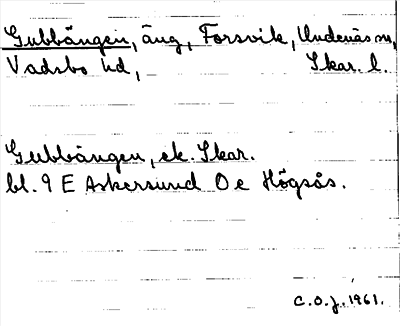 Gubbängen, äng, Forsvik, Undenäs sn,
Vadsbo hd, Skar. l.
Gubbängen, ek. Skar.
bl. 9 E Askersund O e Högsås.
C.O.J. 1961.